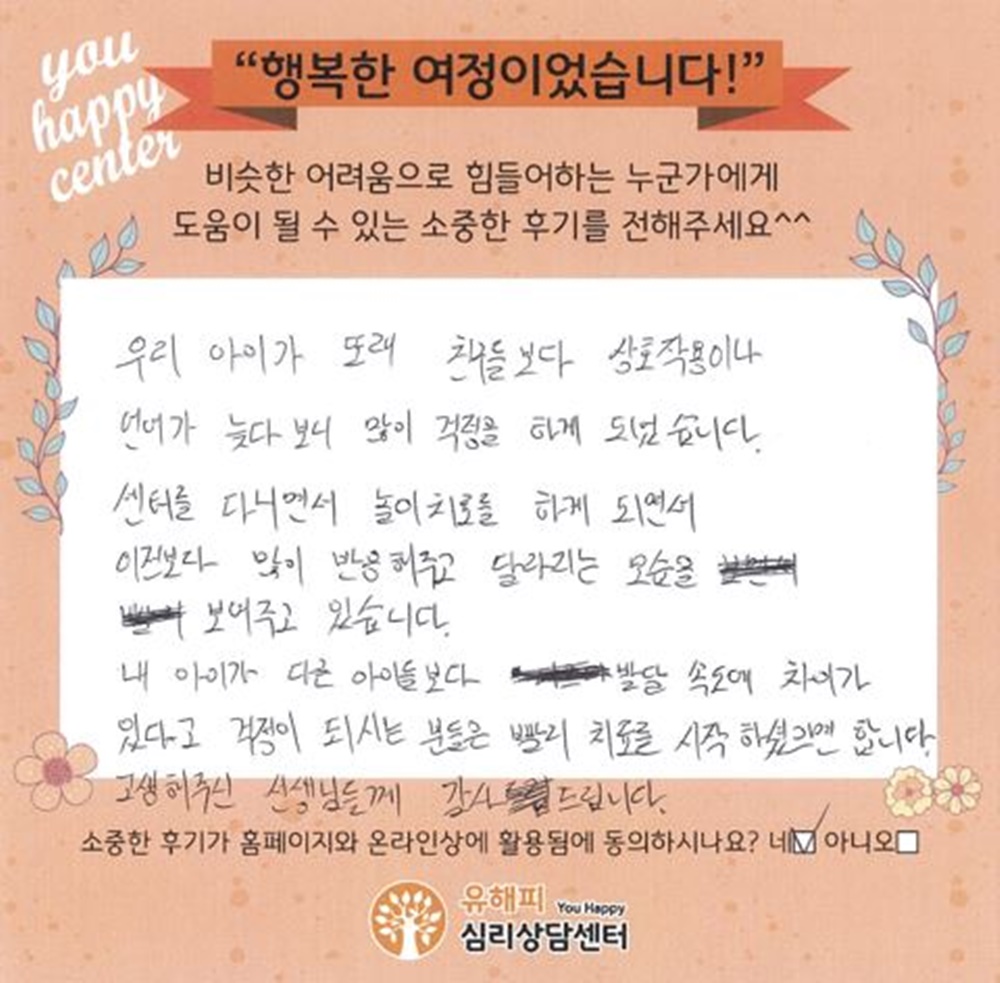 you
happy
center
“행복한 여정이었습니다!”
비슷한 어려움으로 힘들어하는 누군가에게
도움이 될 수 있는 소중한 후기를 전해주세요^^
우리 아이가 또래 친구들보다 상호작용이나
언어가 늦다 보니 많이 걱정을 하게 되었습니다.
센터를 다니면서 놀이치료를 하게 되면서
이전보다 많이 반응해주고 달라지는 모습을
보여주고 있습니다.
내 아이가 다른 아이들보다 발달 속도에 차이가
있다고 걱정이 되시는 분들은 빨리 치료를 시작 하셨으면 합니다.
고생해주신 선생님들께 감사드립니다.
소중한 후기가 홈페이지와 온라인상에 활용됨에 동의하시나요? 네☑ 아니오☐
유해피 You Happy
심리상담센터